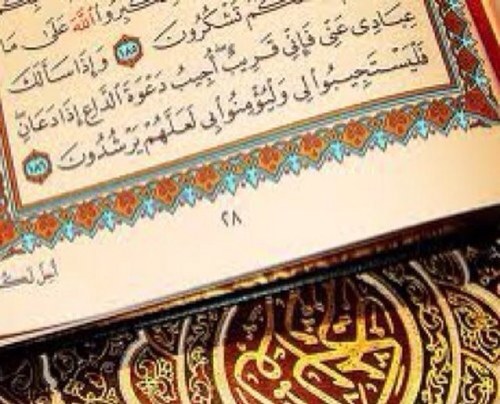 ـكم تشكرون ١٨٥ وإذا سألك
عبادي عني فإني قريب أجيب دعوة الداع إذا دعان
فليستجيبوا لي وليؤمنوا بي لعلهم يرشدون ١٨٦
٢٨
أحل لكـ